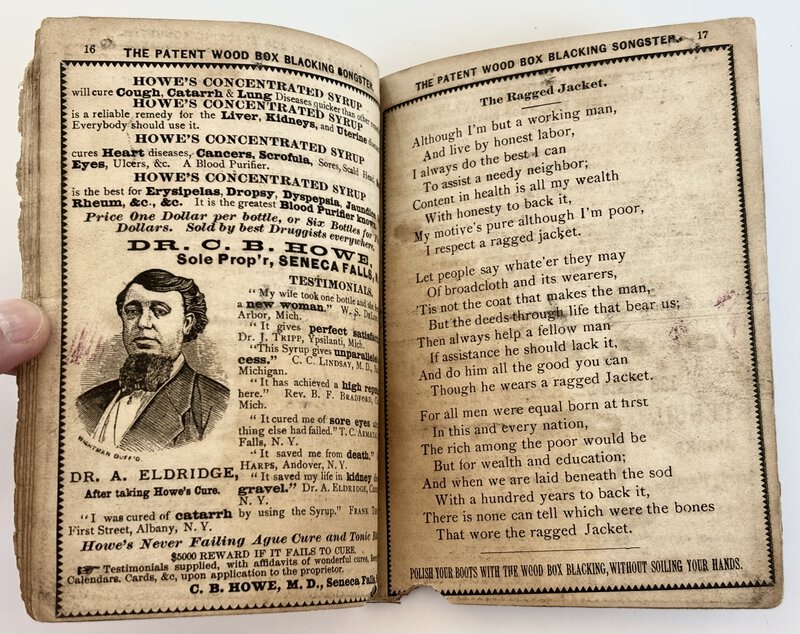 16
THE PATENT WOOD BOX BLACKING SONGSTER.
HOWE'S CONCENTRATED SYRUP
will cure Cough, Catarrh & Lung Diseases quicker than other
HOWE'S CONCENTRATED SYRUP
is a reliable remedy for the Liver, Kidneys, and Uterine
Everybody should use it.
HOWE'S CONCENTRATED SYRUP
cures Heart diseases, Cancers, Scrofula, Sores, Scald Head,
Eyes, Ulcers, &c. A Blood Purifier.
HOWE'S CONCENTRATED SYRUP
is the best for Erysipelas, Dropsy, Dyspepsia, Jaundice,
Rheum, &c., &c. It is the greatest Blood Purifier known.
Price One Dollar per bottle, or Six Bottles for
Dollars. Sold by best Druggists everywhere.
DR. C. B. HOWE,
Sole Prop'r, SENECA FALLS,
TESTIMONIALS.
"My wife took one bottle and
a new woman." W. S.
Arbor, Mich.
"It gives perfect
Dr. J. TRIPP, Ypsilanti, Mich.
"This Syrup gives
cess." C. C. LINDSAY, M. D.,
Michigan.
"It has achieved a high
here." Rev. B. F. BRADFORD,
Mich.
"It cured me of sore eyes
thing else had failed." T. C.
Falls, N. Y.
"It saved me from death."
HARPS, Andover, N. Y.
"It saved my life in kidney
gravel." Dr. A. ELDRIDGE,
N. Y.
WIGHTMAN BUFF'O.
DR. A. ELDRIDGE,
After taking Howe's Cure.
"I was cured of catarrh by using the Syrup." FRANK
First Street, Albany, N. Y.
Howe's Never Failing Ague Cure and Tonic
$5000 REWARD IF IT FAILS TO CURE.
Testimonials supplied, with affidavits of wonderful cures,
Calendars, Cards, &c, upon application to the proprietor.
C. B. HOWE, M. D., Seneca Falls
THE PATENT WOOD BOX BLACKING SONGSTER. 17
The Ragged Jacket.
Although I'm but a working man,
And live by honest labor,
I always do the best I can
To assist a needy neighbor;
Content in health is all my wealth
With honesty to back it,
My motive's pure although I'm poor,
I respect a ragged jacket.
Let people say whate'er they may
Of broadcloth and its wearers,
'Tis not the coat that makes the man,
But the deeds through life that bear us;
Then always help a fellow man
If assistance he should lack it,
And do him all the good you can
Though he wears a ragged Jacket.
For all men were equal born at first
In this and every nation,
The rich among the poor would be
But for wealth and education;
And when we are laid beneath the sod
With a hundred years to back it,
There is none can tell which were the bones
That wore the ragged Jacket.
POLISH YOUR BOOTS WITH THE WOOD BOX BLACKING, WITHOUT SOILING YOUR HANDS.